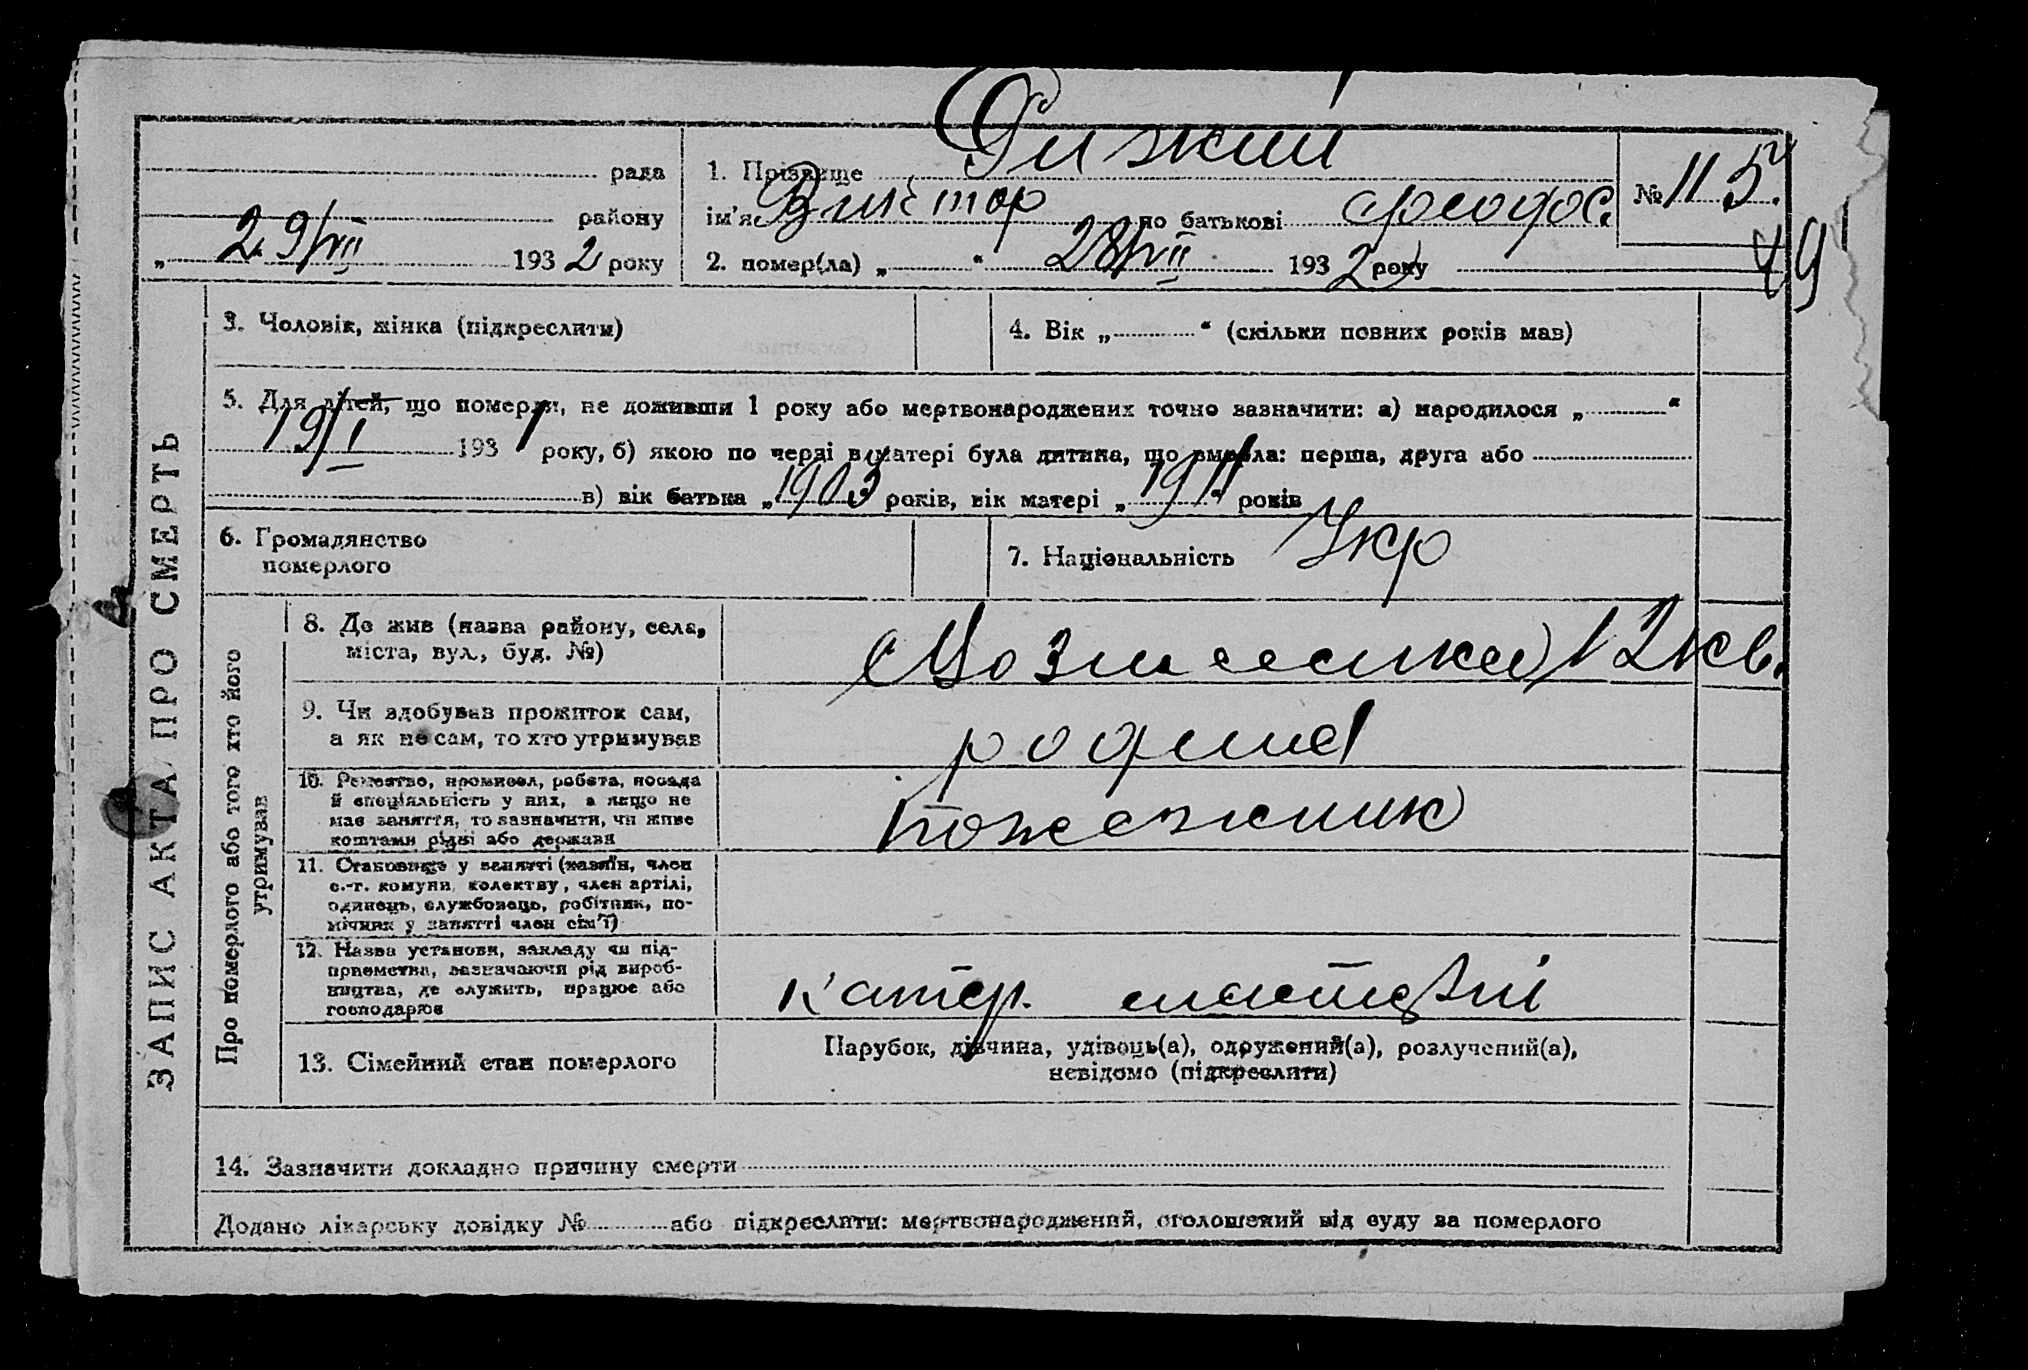 ЗАПИС АКТА ПРО СМЕРТЬ
рада
району
„ 29/VII 1932 року
1. Прізвище
ім'я Виктор по батькові Феодос.
2. помер(ла) „ “ 28/VII 1932 року
№ 115.
49
3. Чоловік, жінка (підкреслити)
4. Вік „ “ (скільки повних років мав)
5. Для дітей, що померли, не доживши 1 року або мертвонароджених точно зазначити: а) народилося „ “
19/I 1931 року, б) якою по черзі в матері була дитина, що вмерла: перша, друга або
в) вік батька „1903 років, вік матері „1911“ років
6. Громадянство
померлого
7. Національність Укр
Про померлого або того хто його
утримував
8. Де жив (назва району, села,
міста, вул., буд. №)
12 кв.
9. Чи здобував прожиток сам,
а як не сам, то хто утримував
родина
10. Ремество, промисел, робота, посада
й спеціяльність у них, а якщо не
має заняття, то зазначити, чи живе
коштами рідні або держави
пожежник
11. Становище у занятті (хазяїн, член
с.-г. комуни, колективу, член артілі,
одинець, службовець, робітник, по-
мічник у занятті член сім'ї)
12. Назва установи, закладу чи під-
приємства, зазначаючи рід вироб-
ництва, де служить, працює або
господарює
Катер.
13. Сімейний стан померлого
Парубок, дівчина, удівець(а), одружений(а), розлучений(а),
невідомо (підкреслити)
14. Зазначити докладно причину смерти
Додано лікарську довідку № або підкреслити: мертвонароджений, оголошений від суду за померлого